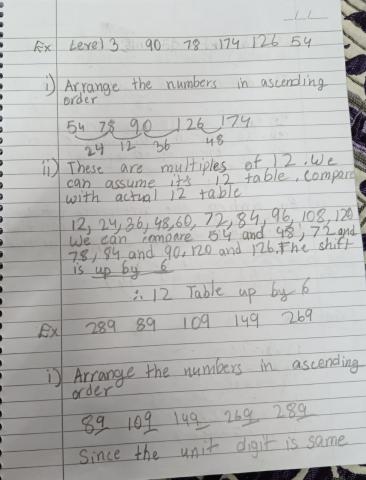 Ex Level 3 90 78 174 126 54
i) Arrange the numbers in ascending
order
54 78 90 126 174
24 12 36 48
ii) These are multiples of 12. We
can assume its 12 table. Compare
with actual 12 table
12, 24, 36, 48, 60, 72, 84, 96, 108, 120
We can compare 54 and 48, 72 and
78, 84 and 90, 120 and 126. The shift
is up by 6
∴ 12 Table up by 6
Ex 289 89 109 149 269
i) Arrange the numbers in ascending
order
89 109 149 269 289
Since the unit digit is same